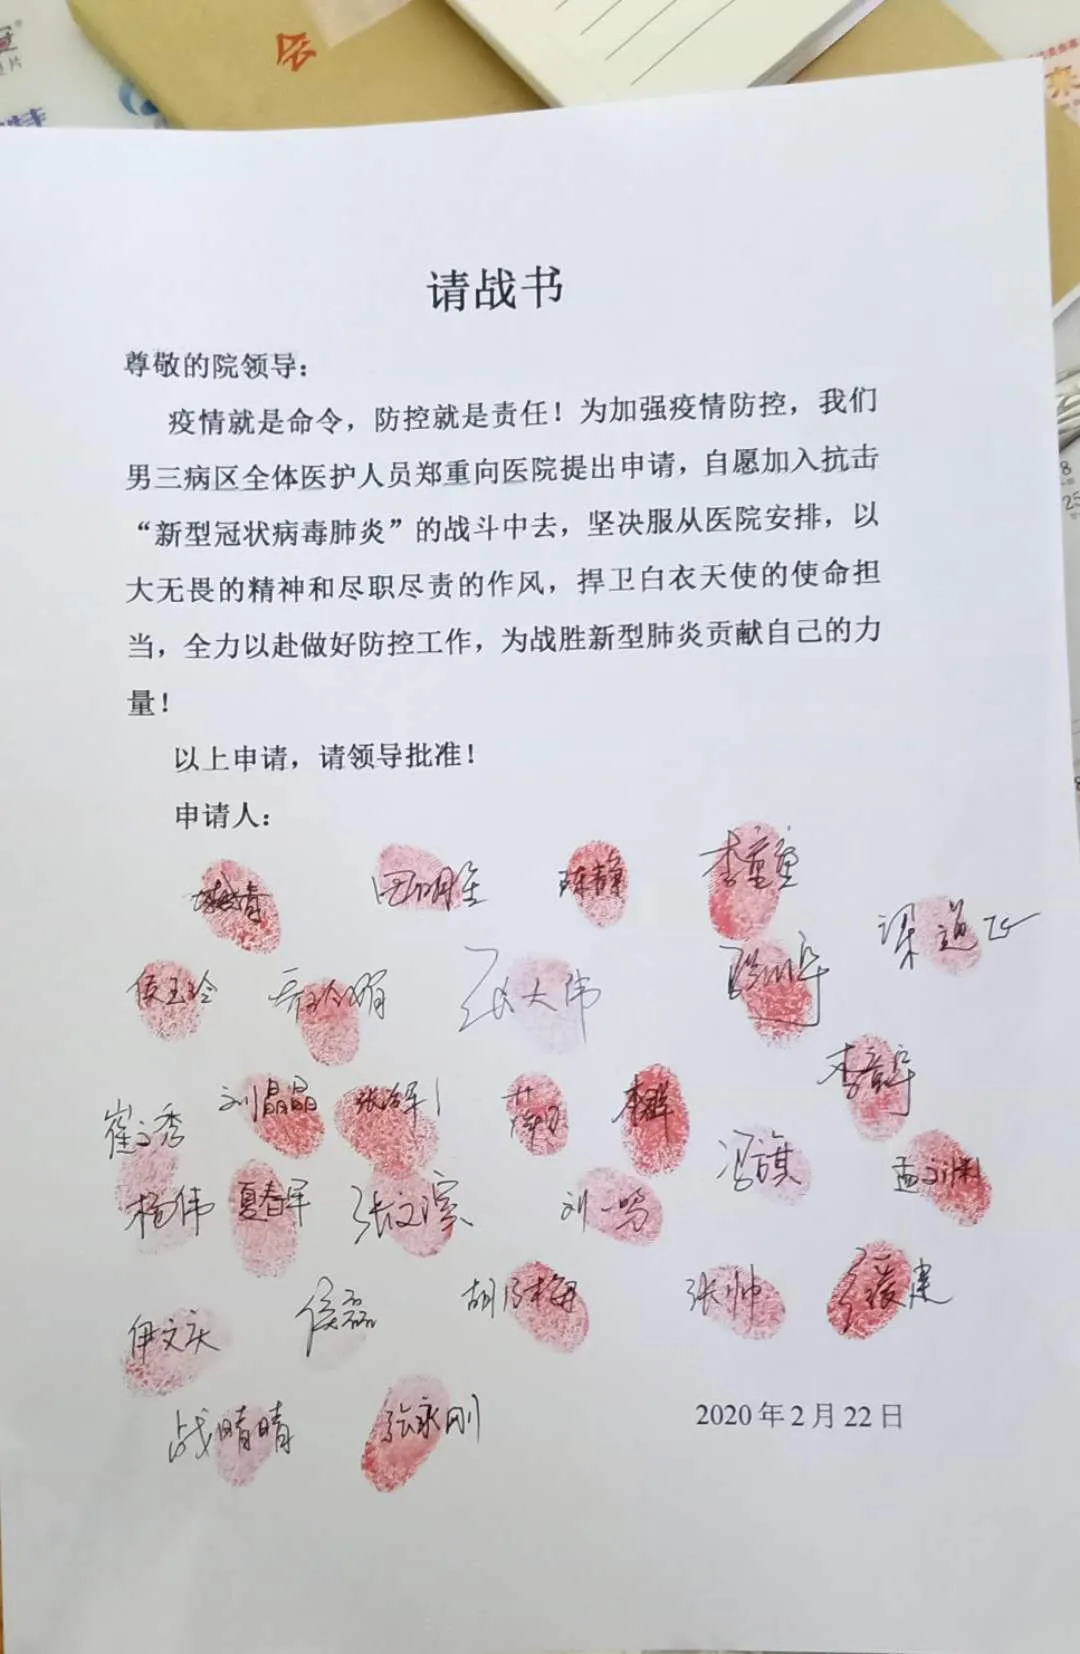 请战书
尊敬的院领导：
疫情就是命令，防控就是责任！为加强疫情防控，我们
男三病区全体医护人员郑重向医院提出申请，自愿加入抗击
“新型冠状病毒肺炎”的战斗中去，坚决服从医院安排，以
大无畏的精神和尽职尽责的作风，捍卫白衣天使的使命担
当，全力以赴做好防控工作，为战胜新型肺炎贡献自己的力
量！
以上申请，请领导批准！
申请人：
陈静 李童童
侯玉玲 张大伟
崔文秀 刘晶晶
冯旗
杨伟 夏春军 张文滨 刘一鸣
伊文庆 侯磊 张帅
战晴晴 张永刚
2020年2月22日